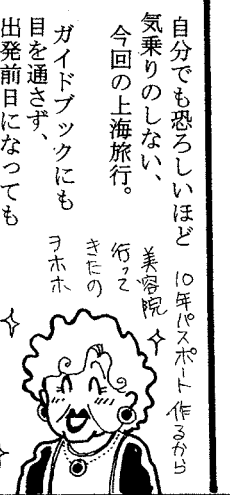 自分でも恐ろしいほど
気乗りのしない、
今回の上海旅行。
ガイドブックにも
目を通さず、
出発前日になっても
10年パスポート作るから
美容院
行って
きたの
ヲホホ